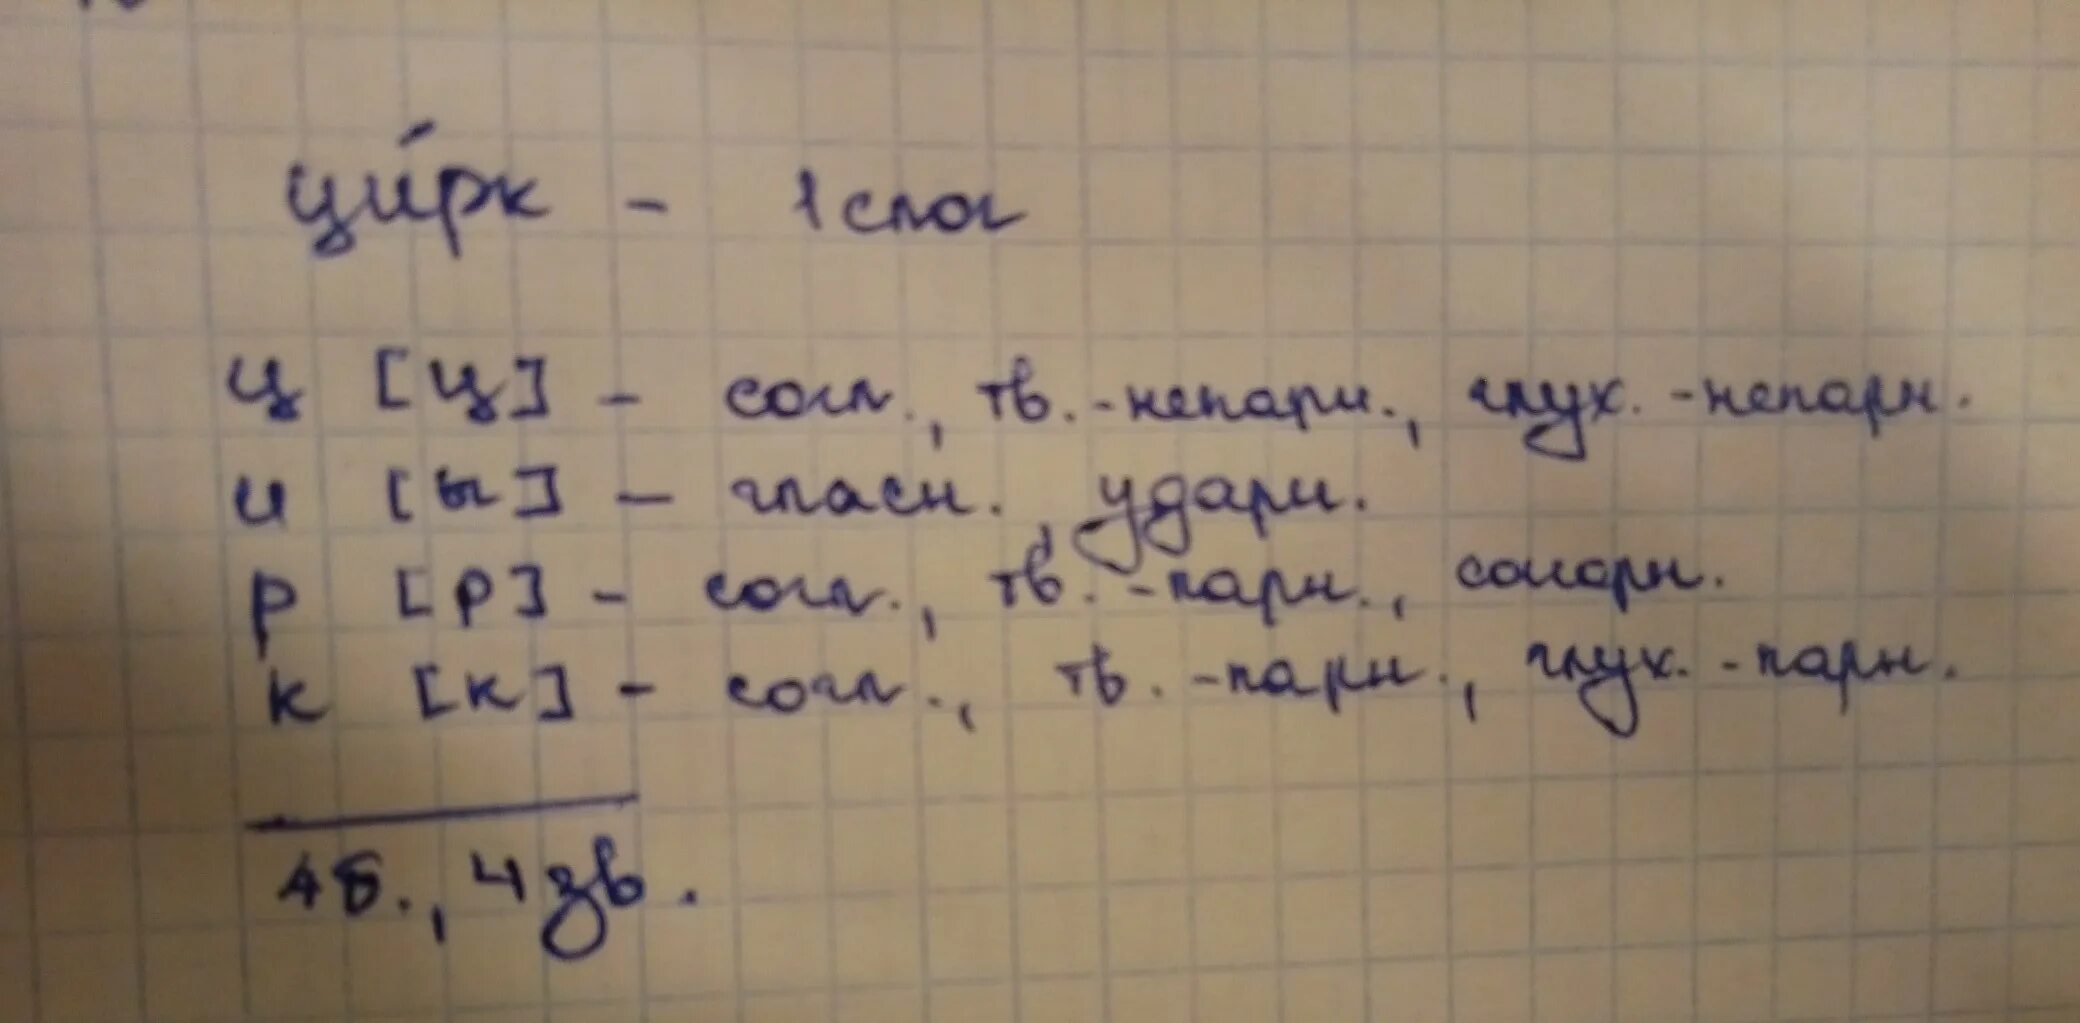 ци́рк - 1 слог
ц [ц] - согл., тв.-непарн., глух.-непарн.
и [ы] - гласн., ударн.
р [р] - согл., тв.-парн., сонорн.
к [к] - согл., тв.-парн., глух.-парн.
4б., 4зв.